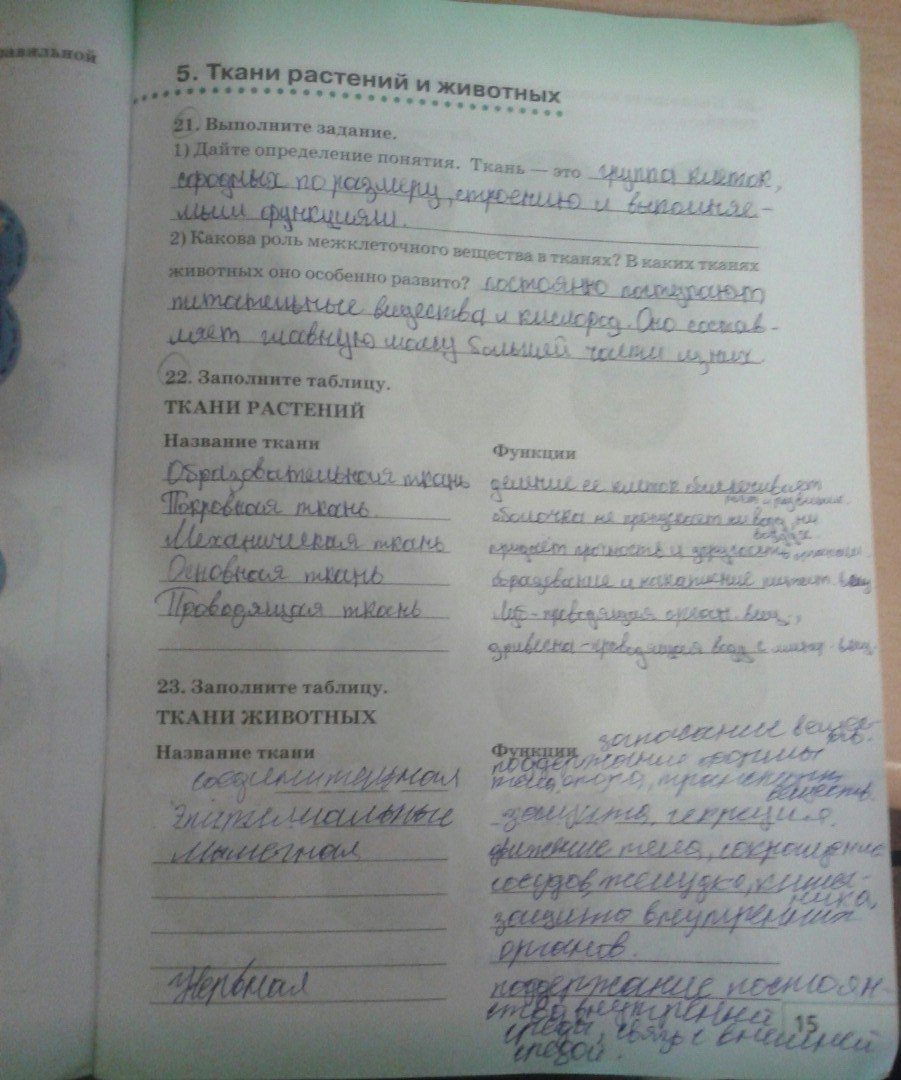 авильной
5. Ткани растений и животных
21. Выполните задание.
1) Дайте определение понятия. Ткань — это группа клеток,
сходных по размеру, строению и выполняе-
мым функциям.
2) Какова роль межклеточного вещества в тканях? В каких тканях
животных оно особенно развито? постоянно поступают
питательные вещества и кислород. Оно состав-
ляет главную массу большей части из них
22. Заполните таблицу.
ТКАНИ РАСТЕНИЙ
Название ткани
Функции
Образовательная ткань деление её клеток обеспечивает
рост и развитие
Покровная ткань оболочка не пропускает ни воду, ни
воздух.
Механическая ткань придаёт прочность и упругость
Основная ткань образование и накопление питат. вещ
Проводящая ткань Луб - проводящая орган. вещ,
древесина - проводящая воду с минер. вещ.
23. Заполните таблицу.
ТКАНИ ЖИВОТНЫХ
Название ткани
Функции запасание веществ.
соединительная поддержание формы
тела, опора, транспорт
веществ.
Эпителиальные защита, секреция.
Мышечная движение тела, сокращение
сосудов, желудка, кишеч-
ника,
защита внутренних
органов.
Нервная поддержание постоян-
ства внутренней
среды, связь с внешней
средой.
15